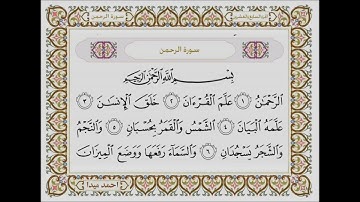 سورة الرحمن
الجزء السابع والعشرين
سورة الرحمن
بسم الله الرحمن الرحيم
الرَّحْمَٰنُ ١ عَلَّمَ الْقُرْءَانَ ٢ خَلَقَ الْإِنسَٰنَ ٣
عَلَّمَهُ الْبَيَانَ ٤ الشَّمْسُ وَالْقَمَرُ بِحُسْبَانٍ ٥ وَالنَّجْمُ
وَالشَّجَرُ يَسْجُدَانِ ٦ وَالسَّمَآءَ رَفَعَهَا وَوَضَعَ الْمِيزَانَ
احمد ميدا